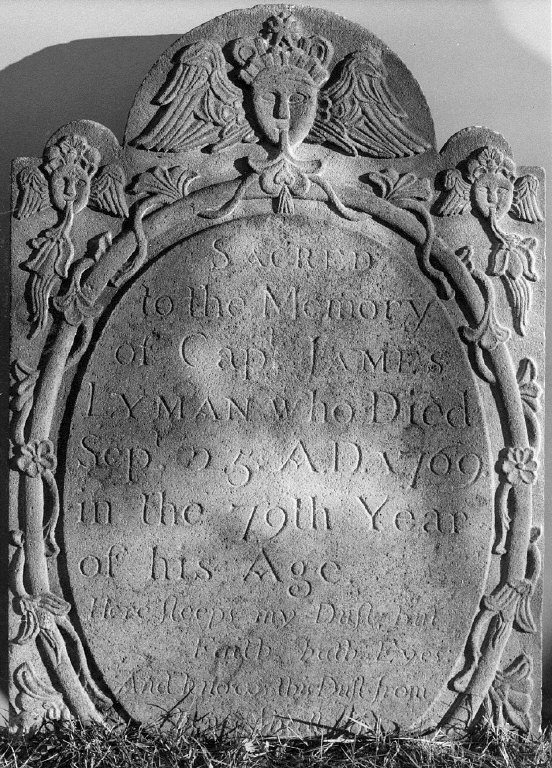 SACRED
to the Memory
of Capt. JAMES
LYMAN who Died
Sept. 25 A.D. 1769
in the 79th Year
of his Age
Here sleeps my Dust, but
Faith hath Eyes.
And knows this Dust from